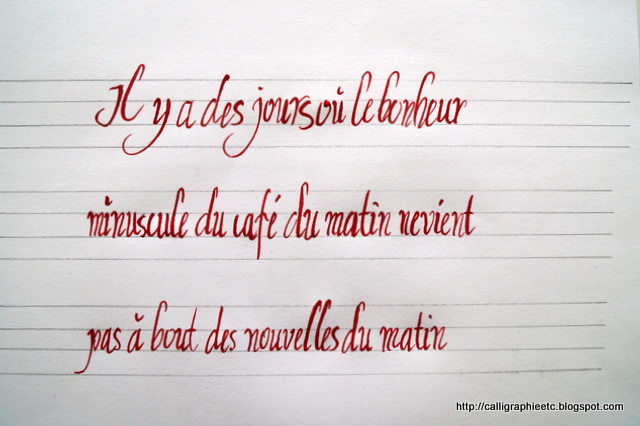 Il y a des jours où le bonheur
minuscule du café du matin nevient
pas à bout des nouvelles du matin
http://calligraphieetc.blogspot.com